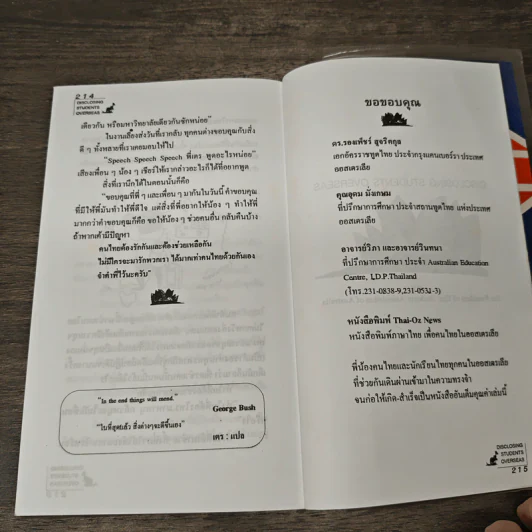 214
DISCLOSING
STUDENTS
OVERSEAS
เดียวกัน หรือมหาวิทยาลัยเดียวกันซักหน่อย"
ในงานเลี้ยงส่งวันที่เรากลับ ทุกคนต่างขอบคุณกับสิ่ง
ดี ๆ ทั้งหลายที่เราเคยมอบให้ไป
"Speech Speech Speech พี่เตร พูดอะไรหน่อย"
เสียงเพื่อน ๆ น้อง ๆ เชียร์ให้เรากล่าวอะไรก็ได้ที่อยากพูด
สิ่งที่เรานึกได้ในตอนนั้นก็คือ
"ขอบคุณที่พี่ ๆ และเพื่อน ๆ มากันในวันนี้ คำขอบคุณ
ที่มีให้พี่มันทำให้พี่ดีใจ แต่สิ่งที่พี่อยากให้น้อง ๆ ทำให้พี่
มากกว่าคำขอบคุณก็คือ ขอให้น้อง ๆ ช่วยคนอื่น กลับคืนบ้าง
ถ้าหากเค้ามีปัญหา
คนไทยต้องรักกันและต้องช่วยเหลือกัน
ไม่มีใครจะมารักพวกเรา ได้มากเท่าคนไทยด้วยกันเอง
จำคำพี่ไว้นะครับ"
"In the end things will mend."
George Bush
"ในที่สุดแล้ว สิ่งต่างๆจะดีขึ้นเอง"
เตร : แปล
ขอขอบคุณ
ดร.รองเพ็ชร์ สุจริตกุล
เอกอัครราชฑูตไทย ประจำกรุงแคนเบอร์รา ประเทศ
ออสเตรเลีย
คุณอุดม มั่งเกษม
ที่ปรึกษาการศึกษา ประจำสถานฑูตไทย แห่งประเทศ
ออสเตรเลีย
อาจารย์วิภา และอาจารย์วันทนา
ที่ปรึกษาการศึกษา ประจำ Australian Education
Centre, I.D.P.Thailand
(โทร.231-0838-9,231-0531-3)
หนังสือพิมพ์ Thai-Oz News
หนังสือพิมพ์ภาษาไทย เพื่อคนไทยในออสเตรเลีย
พี่น้องคนไทยและนักเรียนไทยทุกคนในออสเตรเลีย
ที่ช่วยกันเดินผ่านเข้ามาในความทรงจำ
จนก่อให้เกิด-สำเร็จเป็นหนังสืออันเต็มคุณค่าเล่มนี้
DISCLOSING
STUDENTS
OVERSEAS
215